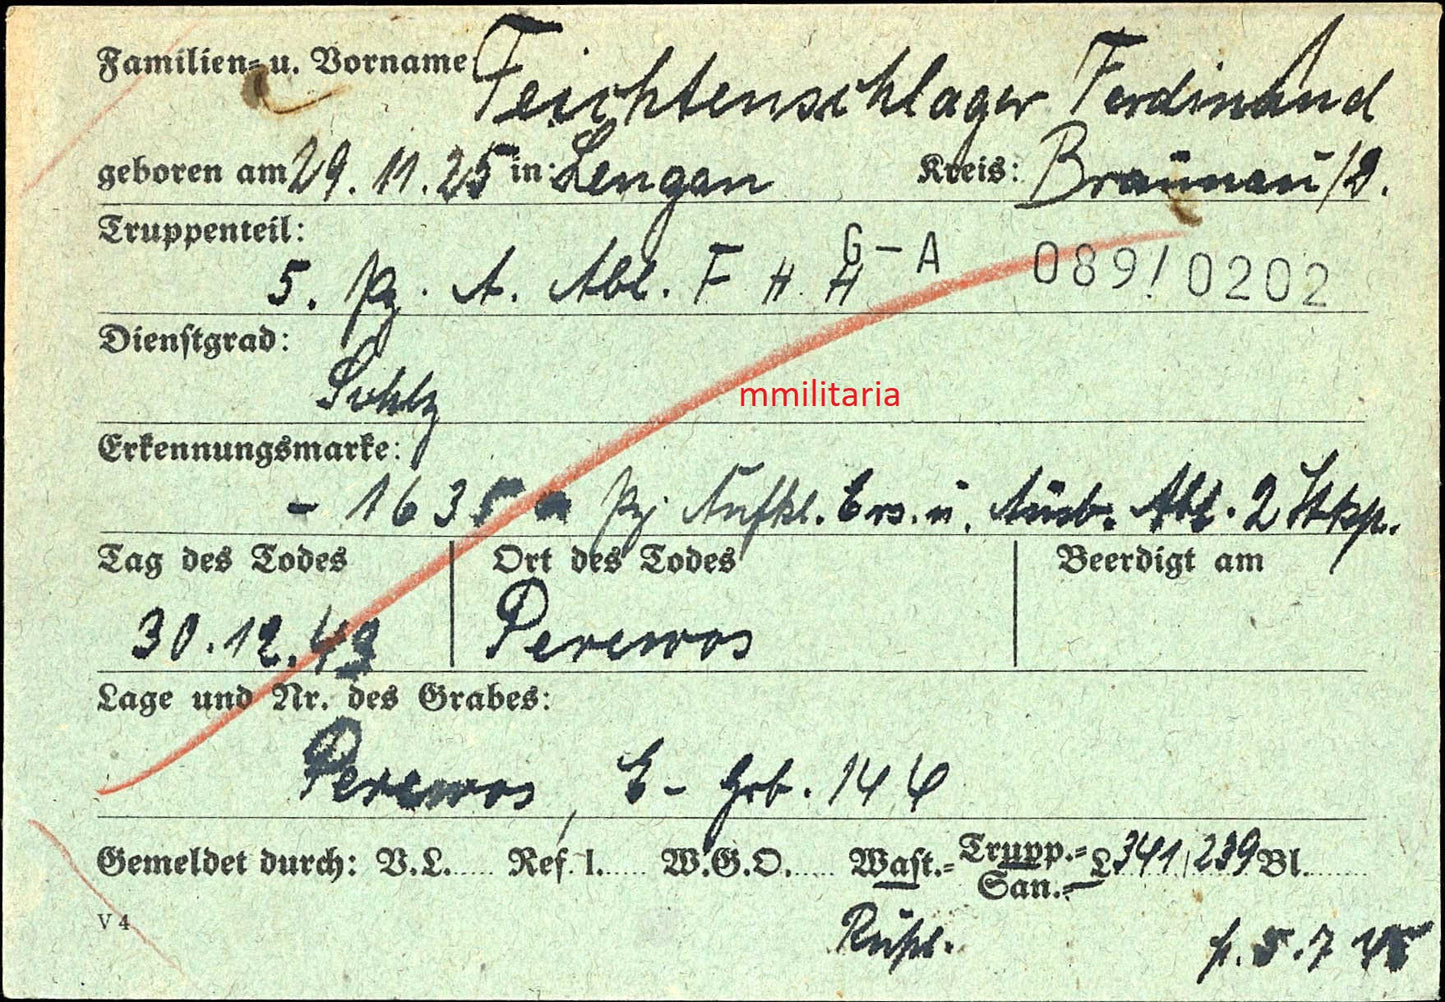 Familien- u. Vorname: Feichtenschlager Ferdinand
geboren am 29.11.25 in: Lengau Kreis: Braunau/D.
Truppenteil:
G-A 089/0202
5. Pz. A. Abt. F H H
Dienstgrad:
Schtz
mmilitaria
Erkennungsmarke:
- 1635 Pz Aufkl. Ers. u. Ausb. Abt. 2
Tag des Todes Ort des Todes Beerdigt am
30.12.43 Perewos
Lage und Nr. des Grabes:
Perewos, E- Grb. 144
Gemeldet durch: V.L...... Ref. I...... W.G.O...... Wast.= Trupp.= L 341/239 Bl.........
San.=
V 4
5.7